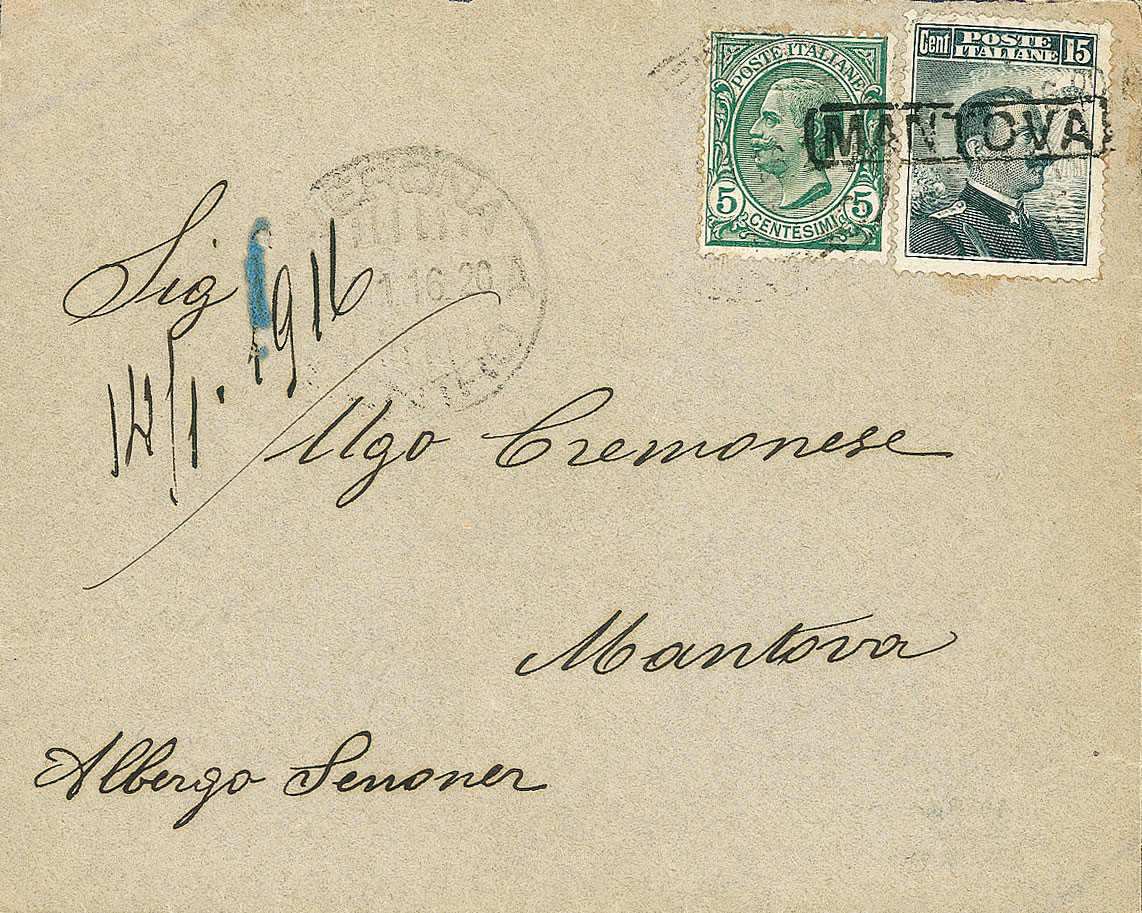 POSTE ITALIANE
5 5
CENTESIMI
Cent POSTE ITALIANE 15
MANTOVA
Sig
1916
Ugo Cremonese
Mantova
Albergo Senoner